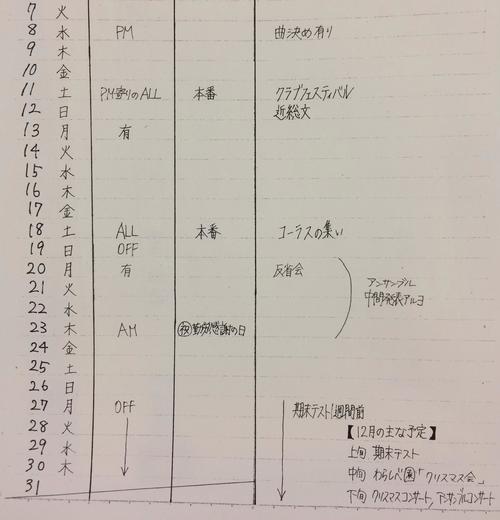 7 火
8 水 PM 曲決め有り
9 木
10 金
11 土 PM寄りのALL 本番 クラブフェスティバル
12 日 近総文
13 月 有
14 火
15 水
16 木
17 金
18 土 ALL 本番 コーラスの集い
19 日 OFF
20 月 有 反省会
21 火 アンサンブル
22 水 中間発表アルヨ
23 木 AM 祝勤労感謝の日
24 金
25 土
26 日
27 月 OFF 期末テスト1週間前
28 火 【12月の主な予定】
29 水 上旬 期末テスト
30 木 中旬 わらしべ園「クリスマス会」
31 下旬 クリスマスコンサート,アンサンブルコンサート